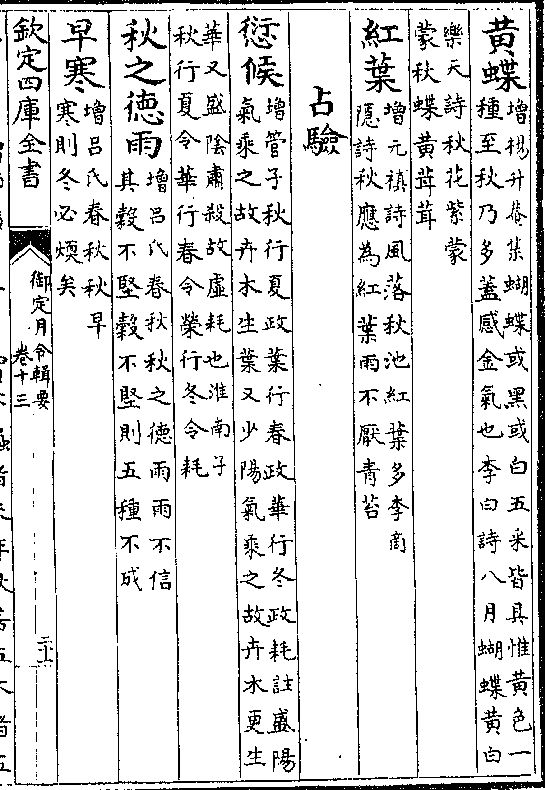 黄蝶增楊升菴集蝴蝶或黑或白五采皆具惟黄色一
種至秋乃多蓋感金氣也李白詩八月蝴蝶黄白
樂天詩秋花紫蒙
蒙秋蝶黄茸茸
紅葉增元禛詩風落秋池紅葉多李商
隱詩秋應為紅葉雨不厭青苔
占驗
愆候增管子秋行夏政葉行春政華行冬政耗註盛陽
氣乘之故卉木生葉又少陽氣乘之故卉木更生
華又盛陰肅殺故虛耗也淮南子
秋行夏令華行春令榮行冬令耗
秋之德雨增吕氏春秋秋之德雨雨不信
其穀不堅穀不堅則五種不成
早寒增吕氏春秋秋早
寒則冬必煗矣
欽定四庫全書
御定月令輯要
卷十三